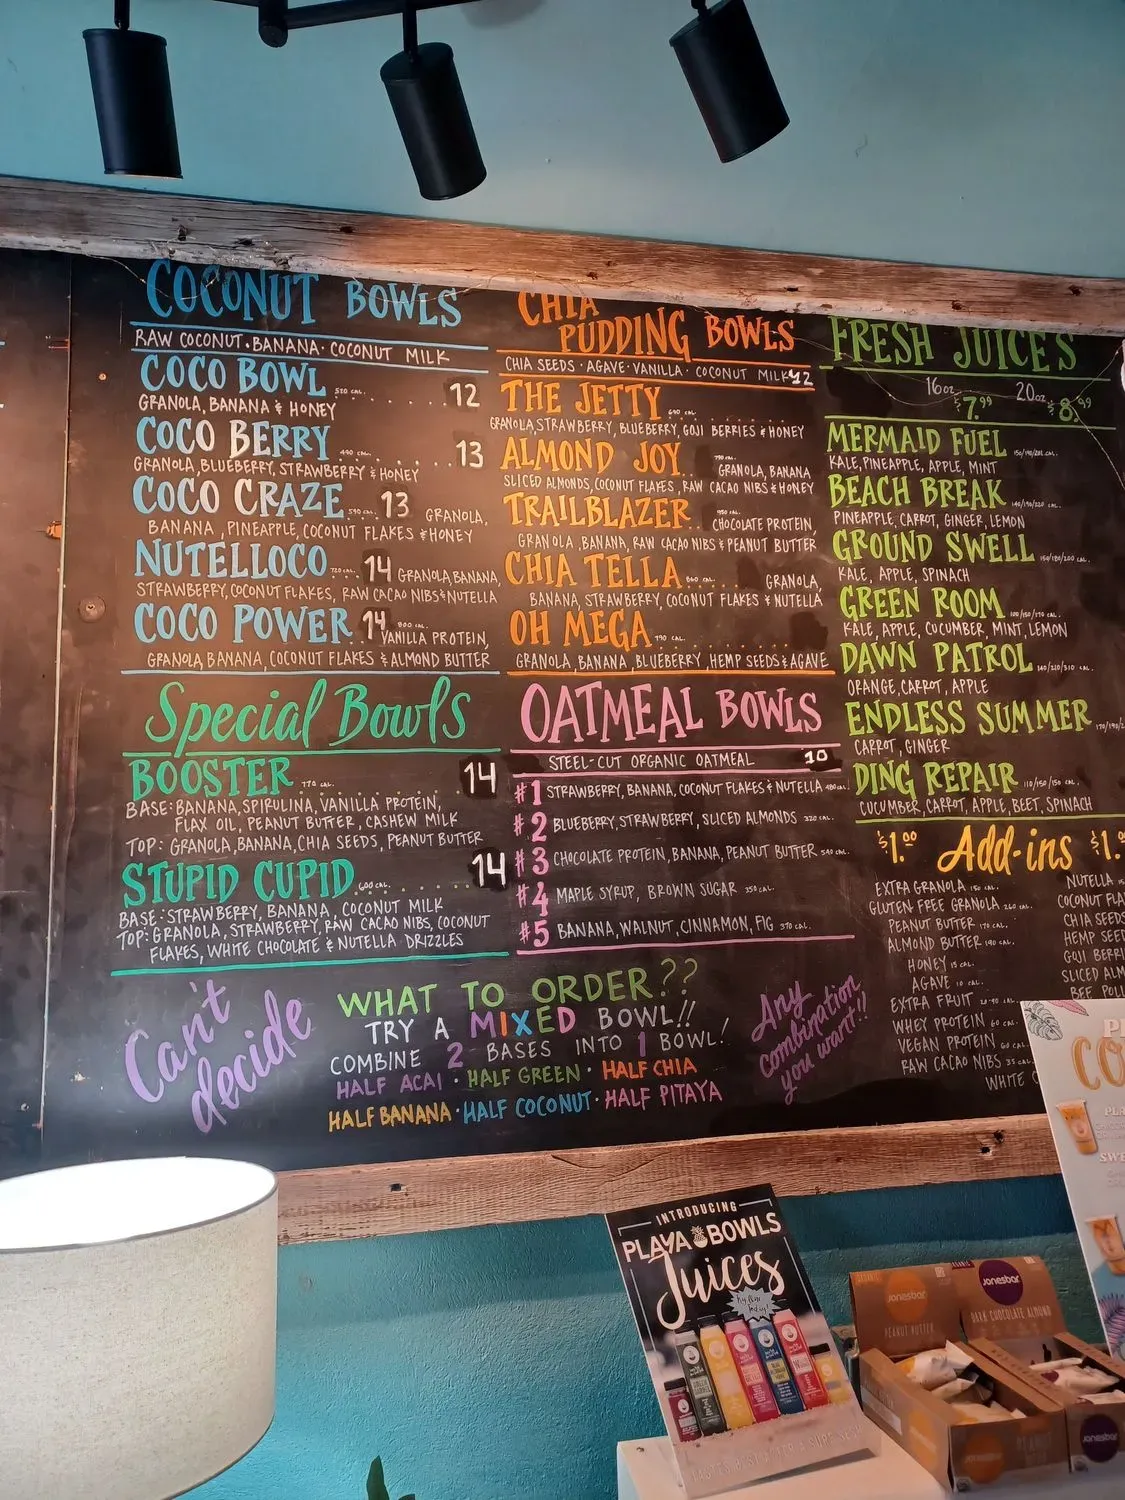 COCONUT BOWLS
RAW COCONUT · BANANA · COCONUT MILK
COCO BOWL 510 CAL. 12
GRANOLA, BANANA & HONEY
COCO BERRY 490 CAL. 13
GRANOLA, BLUEBERRY, STRAWBERRY & HONEY
COCO CRAZE 590 CAL. 13 GRANOLA,
BANANA, PINEAPPLE, COCONUT FLAKES & HONEY
NUTELLOCO 720 CAL. 14 GRANOLA, BANANA,
STRAWBERRY, COCONUT FLAKES, RAW CACAO NIBS & NUTELLA
COCO POWER 14 800 CAL. VANILLA PROTEIN,
GRANOLA, BANANA, COCONUT FLAKES & ALMOND BUTTER
Special Bowls
BOOSTER 770 CAL. 14
BASE: BANANA, SPIRULINA, VANILLA PROTEIN,
FLAX OIL, PEANUT BUTTER, CASHEW MILK
TOP: GRANOLA, BANANA, CHIA SEEDS, PEANUT BUTTER
STUPID CUPID 600 CAL. 14
BASE: STRAWBERRY, BANANA, COCONUT MILK
TOP: GRANOLA, STRAWBERRY, RAW CACAO NIBS, COCONUT
FLAKES, WHITE CHOCOLATE & NUTELLA DRIZZLES
CHIA
PUDDING BOWLS
CHIA SEEDS · AGAVE · VANILLA · COCONUT MILK 12
THE JETTY 640 CAL.
GRANOLA, STRAWBERRY, BLUEBERRY, GOJI BERRIES & HONEY
ALMOND JOY 790 CAL. GRANOLA, BANANA
SLICED ALMONDS, COCONUT FLAKES, RAW CACAO NIBS & HONEY
TRAILBLAZER 950 CAL. CHOCOLATE PROTEIN,
GRANOLA, BANANA, RAW CACAO NIBS & PEANUT BUTTER
CHIA TELLA 860 CAL. GRANOLA,
BANANA, STRAWBERRY, COCONUT FLAKES & NUTELLA
OH MEGA 790 CAL.
GRANOLA, BANANA, BLUEBERRY, HEMP SEEDS & AGAVE
OATMEAL BOWLS
STEEL-CUT ORGANIC OATMEAL 10
#1 STRAWBERRY, BANANA, COCONUT FLAKES & NUTELLA 480 CAL.
#2 BLUEBERRY, STRAWBERRY, SLICED ALMONDS 320 CAL.
#3 CHOCOLATE PROTEIN, BANANA, PEANUT BUTTER 540 CAL.
#4 MAPLE SYRUP, BROWN SUGAR 350 CAL.
#5 BANANA, WALNUT, CINNAMON, FIG 370 CAL.
FRESH JUICES
16oz $7.99 20oz $8.99
MERMAID FUEL
KALE, PINEAPPLE, APPLE, MINT
BEACH BREAK
PINEAPPLE, CARROT, GINGER, LEMON
GROUND SWELL
KALE, APPLE, SPINACH
GREEN ROOM
KALE, APPLE, CUCUMBER, MINT, LEMON
DAWN PATROL
ORANGE, CARROT, APPLE
ENDLESS SUMMER
CARROT, GINGER
DING REPAIR
CUCUMBER, CARROT, APPLE, BEET, SPINACH
$1.00 Add-ins $1.
EXTRA GRANOLA 150 CAL.
GLUTEN FREE GRANOLA 260 CAL.
PEANUT BUTTER 170 CAL.
ALMOND BUTTER 190 CAL.
HONEY 15 CAL.
AGAVE 10 CAL.
EXTRA FRUIT
WHEY PROTEIN 60 CAL.
VEGAN PROTEIN 60 CAL.
RAW CACAO NIBS 35 CAL.
WHITE C
NUTELLA
COCONUT FLA
CHIA SEEDS
HEMP SEED
GOJI BERRI
SLICED ALM
BEE POL
Can't
decide
WHAT TO ORDER??
TRY A MIXED BOWL!!
COMBINE 2 BASES INTO 1 BOWL!
HALF ACAI · HALF GREEN · HALF CHIA
HALF BANANA · HALF COCONUT · HALF PITAYA
Any
combination
you want!!
INTRODUCING
PLAYA BOWLS
Juices
jonesbar
PEANUT BUTTER
jonesbar
DARK CHOCOLATE ALMOND
jonesbar
jonesbar